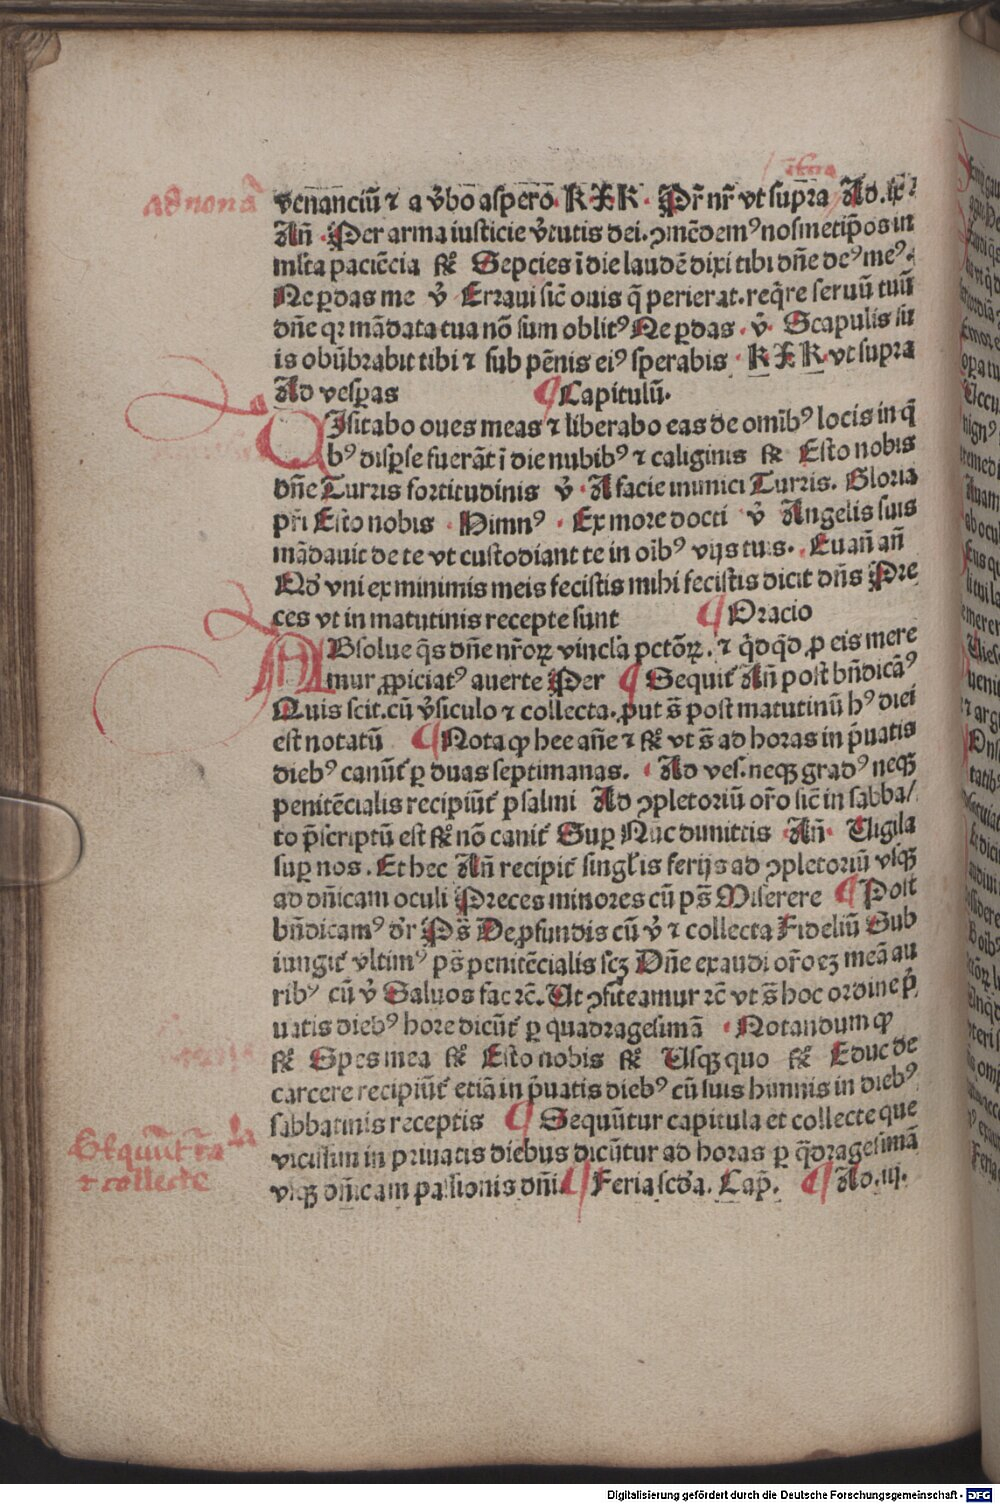 ad nonā
venanciū ⁊ a v̓bo aspero. K X K. Pr̄ nr̄ vt supra Ad .ix.
Añ Per arma iusticie v̓tutis dei. ↄmēdemꝰ nosmetip̄os in
ml̄ta paciēcia ꝶ Sepcies ī die laudē dixi tibi dñe deꝰ meꝰ.
Ne ꝑdas me v̓ Erraui sic̄ ouis q̄ perierat. req̄re seruū tuū
dñe qꝛ mādata tua nō sum oblitꝰ Ne ꝑdas. v̓. Scapulis su
is obūbrabit tibi ⁊ sub pēnis eiꝰ sperabis K X K. vt supra
Ad vesꝑas ¶ Capitulū.
VIsitabo oues meas ⁊ liberabo eas de omībꝰ locis in q̄
bꝰ disꝑse fuerāt ī die nubibꝰ ⁊ caliginis ꝶ Esto nobis
dñe Turris fortitudinis v̓ A facie inimici Turris. Gloria
pr̄i Esto nobis. Himnꝰ. Ex more docti v̓ Angelis suis
mādauit de te vt custodiant te in oībꝰ vijs tuis. Euañ añ
Qd̓ vni ex minimis meis fecistis mihi fecistis dicit dñs Pre
ces vt in matutinis recepte sunt ¶ Oracio
ABsolue q̄s dñe nr̄oꝝ vincla pctōꝝ. ⁊ q̓dq̓d ꝓ eis mere
mur ꝓpiciatꝰ auerte Per ¶ Sequit̄ Añ post bñdicāꝰ
Quis scit. cū v̓siculo ⁊ collecta. ꝓut s̄ post matutinū hꝰ diei
est notatū ¶ Nota ꝙ hee añe ⁊ ꝶ vt s̄ ad horas in p̄uatis
diebꝰ canūt̄ ꝑ duas septimanas. Ad ves. neqꝫ gradꝰ neqꝫ
penitēcialis recipiūt̄ psalmi Ad ↄpletoriū or̄o sic̄ in sabba/
to p̄scriptū est ꝶ nō canit̄ Suꝑ Nūc dimittis Añ. Vigila
suꝑ nos. Et hec Añ recipit̄ singl̓is ferijs ad ↄpletoriū vsqꝫ
ad dñicam oculi Preces minores cū ps̄ Miserere ¶ Post
bñdicamꝰ dr̓ Ps̄ De ꝓfundis cū v̓ ⁊ collecta Fideliū Sub
iungit̄ vltimꝰ ps̄ penitēcialis scꝫ Dñe exaudi or̄oeꝫ meā au
ribꝰ cū v̓ Saluos fac ⁊c̄. Ut ↄfiteamur ⁊c̄ vt s̄ hoc ordine p̓
uatis diebꝰ hore dicūt̄ ꝑ quadragesimā Notandum ꝙ
ꝶ Spes mea ꝶ Esto nobis ꝶ Usqꝫ quo ꝶ Educ de
carcere recipiūt̄ etiā in p̄uatis diebꝰ cū suis himnis in diebꝰ
sabbatinis receptis ¶ Sequūtur capitula et collecte que
Sequūt̄ ca
⁊ collecte
vicissim in priuatis diebus dicūtur ad horas ꝑ q̄dragesimā
vsqꝫ dn̄icam passionis dn̄i ¶ Feria scd̓a. Cap̄. ¶ Ad .iij.
Digitalisierung gefördert durch die Deutsche Forschungsgemeinschaft - DFG